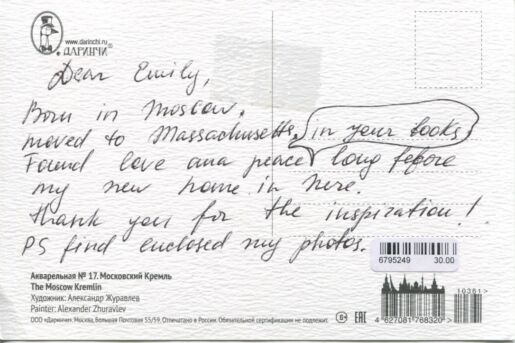 www.darinchi.ru
ДАРИНЧИ®
Dear Emily,
Born in Moscow,
moved to Massachusetts,
in your books
Found love and peace long before
my new home in here.
thank you for the inspiration!
PS find enclosed my photos.
6795249 30.00
Акварельная № 17. Московский Кремль
The Moscow Kremlin
Художник: Александр Журавлев
Painter: Alexander Zhuravlev
ООО «Даринчи». Москва, Большая Почтовая 55/59. Отпечатано в России. Обязательной сертификации не подлежит.
6+
EAC
4 627081 768320 >
10361>